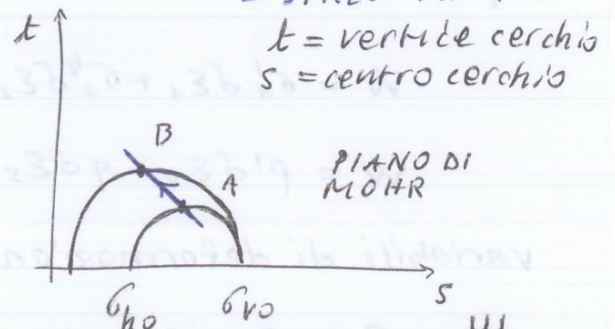 t
t = vertice cerchio
s = centro cerchio
B
A
PIANO DI
MOHR
σh0
σv0
s